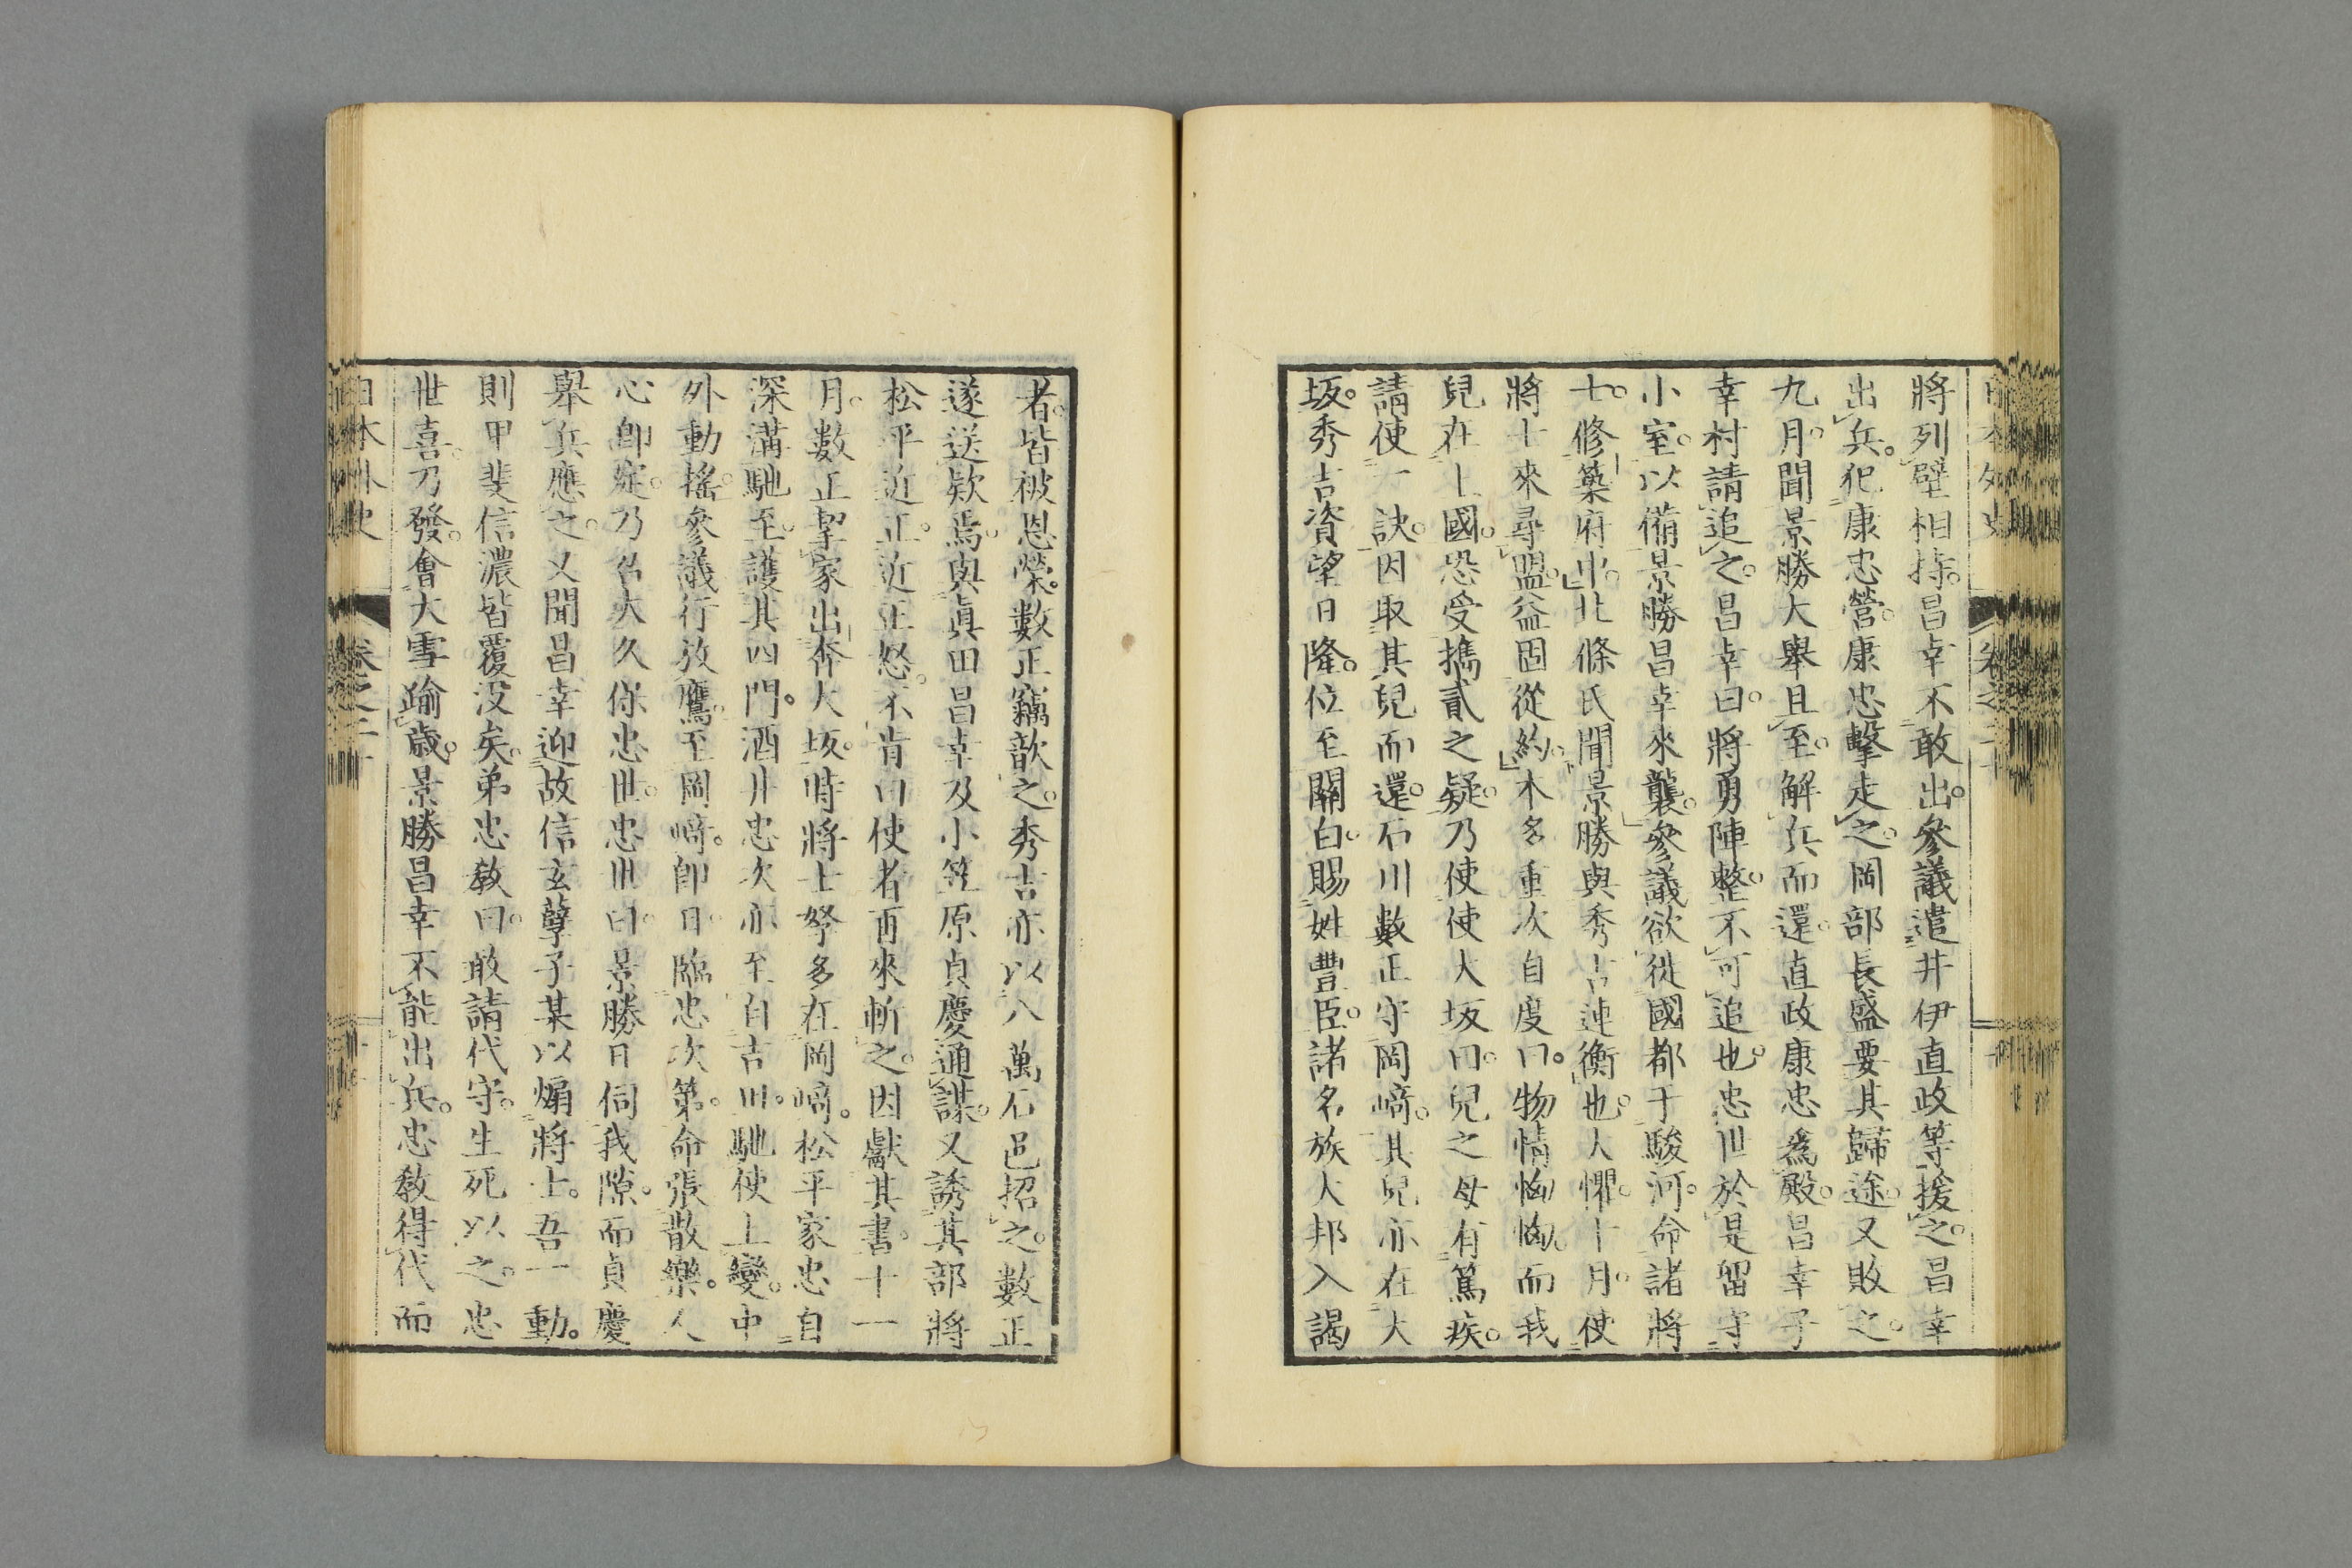 將列壁相持。昌幸不敢出。參議遣井伊直政等援之。昌幸
出兵。犯康忠營。康忠擊走之。岡部長盛要其歸途。又敗之。
九月。聞景勝大舉且至。解兵而還。直政康忠爲殿。昌幸子
幸村請追之。昌幸曰。將勇陣整。不可追也。忠世於是留守
小室。以備景勝昌幸來襲。參議欲徙國都于駿河。命諸將
士。修築府中。北條氏聞景勝與秀吉連衡也。大懼。十月。使
將士來尋盟。益固從約。本多重次自度曰。物情恟恟。而我
兒在上國。恐受攜貳之疑。乃使使大坂曰。兒之母有篤疾。
請使一訣。因取其兒而還。石川數正守岡﨑。其兒亦在大
坂。秀吉資望日隆。位至關白。賜姓豐臣。諸名族大邦入謁
者。皆被恩榮。數正竊歆之。秀吉亦以八萬石邑招之。數正
遂送款焉。與眞田昌幸及小笠原貞慶通謀。又誘其部將
松平近正。近正怒。不肯曰使者再來斬之。因獻其書。十一
月。數正挈家出奔大坂。時將士孥多在岡﨑。松平家忠自
深溝馳至。護其四門。酒井忠次亦至自吉川。馳使上變。中
外動搖。參議行放鷹。至岡﨑。卽日臨忠次第。命張散樂。人
心卽定。乃召大久保忠世。忠世曰。景勝日伺我隙。而貞慶
舉兵應之。又聞昌幸迎故信玄孽子某以煽將士。吾一動。
則甲斐信濃皆覆没矣。弟忠敎曰。敢請代守。生死以之。忠
世喜。乃發。會大雪踰歳。景勝昌幸不能出兵。忠敎得代而
日本外史　卷之二十